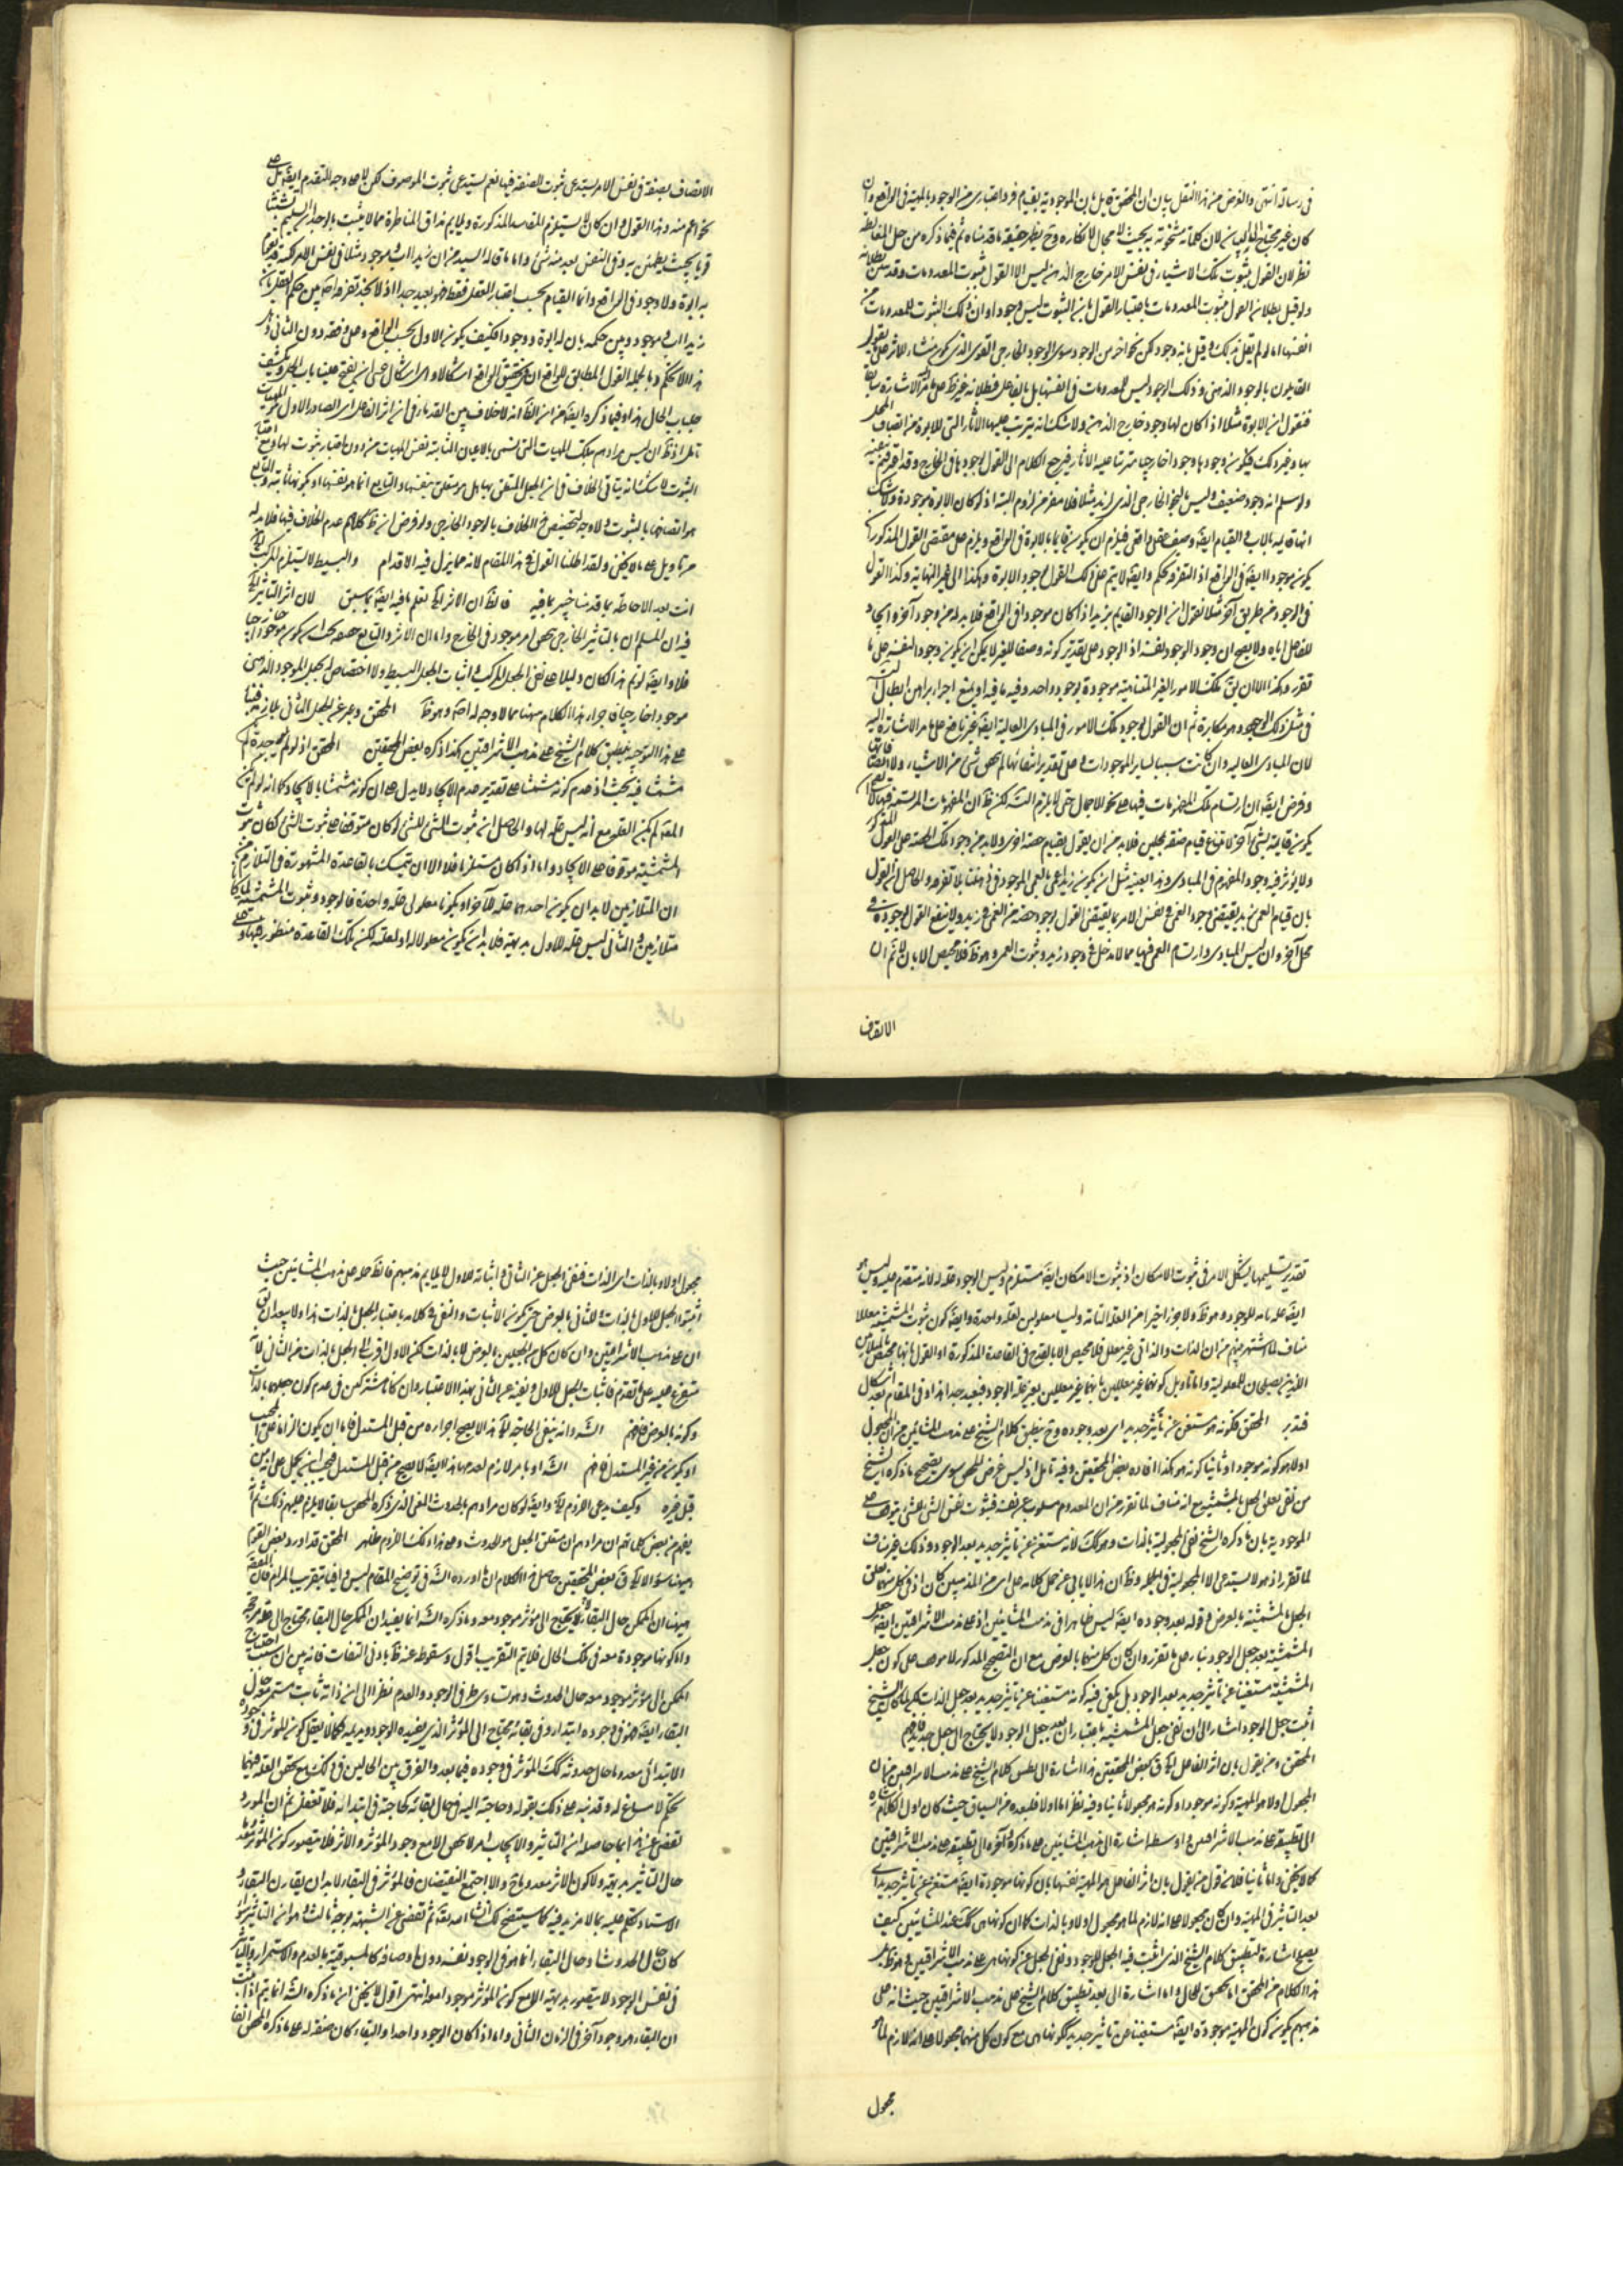 في رسالة انتهى والغرض من هذا النقل بيان ان المحقق قايل بان الموجودية بقيام فرد اعتباري من الوجود بالمهية في الواقع وان
كان غير محتاج الى البيان لان كلماته مشحونة به بحيث لا مجال لانكاره وح يظهر حقيقة ما قدمناه ثم فيما ذكره من حل المغالطة
نظر لان القول بثبوت تلك الاشياء في نفس الامر خارج الذهن ليس الا القول بثبوت المعدومات وقد تبين بطلانه
ولو قيل بطلان القول بثبوت المعدومات باعتبار القول بان الثبوت ليس وجودا وان ذلك الثبوت للمعدومات من
انفسها اما لو لم يقل بذلك وقيل بانه وجود لكن نحو اخر من الوجود سوى الوجود الخارجي القوي الذي يكون منشاء للاثر على ما يقول
القايلون بالوجود الذهني وذلك الوجود ليس للمعدومات في انفسها بل بالفاعل فبطلانه غير ظ على ما مر الاشارة سابقا
فنقول ان الابوة مثلا اذا كان لها وجود خارج الذهن ولا شك انه يترتب عليها الاثار التي للابوة من اتصاف المحل
بها وغير ذلك فيكون وجودها وجودا خارجيا مترتبا عليه الاثار فيرجع الكلام الى القول بوجودها في الخارج وقد
ولو سلم انه وجود ضعيف وليس بالنحو الخارجي الذي لزيد مثلا فلا مفر من لزوم البتة اذ لو كان الابوة موجودة ولا شك
انها قايمة بالاب والقيام ايضا وصف حقيقي واقعي فيلزم ان يكون قايما بالابوة في الواقع ويلزم على مقتضى القول المذكور ان
يكون موجودا ايضا في الواقع اذ التفرقة تحكم وايضا لا يتم على ذلك القول بوجود الابوة وهكذا الى غير النهاية وكذا القول
في الوجود من طريق آخر مثلا نقول ان الوجود القايم بزيد اذا كان موجودا في الواقع فلا بد له من وجود آخر وايجاد
للفاعل اياه ولا يصح ان وجود الوجود لنفسه اذ الوجود على تقدير كونه وصفا للغير لا يمكن ان يكون وجودا لنفسه على ما
تقرر وهكذا الا ان يق تلك الامور الغير المتناهية موجودة بوجود واحد وفيه ما فيه او يمنع اجراء براهين ابطال
في مثل ذلك الوجود وهو مكابرة ثم ان القول بوجود تلك الامور في المبادي العالية ايضا غير نافع على ما مر الاشارة اليه
لان المبادي العالية وان كانت سببا لساير الموجودات وعلى تقدير انتفائها لم يتحقق شيء من الاشياء
وفرض ايضا ان ارتسام تلك المفهومات فيها على نحو الاجمال حتى لا يلزم التسلسل لكن ظ ان المفهومات المرتسمة فيها لا
يكون قايمة بشيء آخر لامتناع قيام صفة بمحلين فلا بد من ان يقول بقيام حصة اخرى ولا بد من وجود تلك الحصة على القول
ولا يؤثر فيه وجود المفهوم في المبادي وهذا بعينه مثل ان يكون زيد اعمى بالعمى الموجود في ذهننا بلا تفرقة والحاصل ان القول
بان قيام العمى بزيد يقتضي وجود العمى في نفس الامر بما يقتضي القول بوجود حصة من العمى في زيد ولا ينفع القول بوجوده في
محل آخر وان ليس المبادي وارتسام العمى فيها مما لا مدخل في وجود زيد وثبوت العمى وهو ظ فلا محيص الا بان يق ان
الاتصاف
الاتصاف بصفة في نفس الامر يستدعي ثبوت الصفة فيها نعم يستدعي ثبوت الموصوف لكن لا على وجه التقدم ايضا بل على
نحو اعم منه وهذا القول وان كان لا يستلزم المفاسد المذكورة ويلايم مذاق المناظرة مما لا يثبت بالوجدان السليم
قويا بحيث يطمئن به وفي النفس بعد منه شيء واما ما قاله السيد من ان زيدا اب وموجود مثلا في نفس الامر
به ابوة ولا وجود في الواقع وانما القيام بحسب اعتبار العقل فقط فهو بعيد جدا اذ لا نجد تفرقة اصلا بين حكم العقل بان
زيدا اب وموجود وبين حكمه بان له ابوة ووجودا فكيف يكون الاول بحسب الواقع وعلى وفقه دون الثاني وهل
هذا الا تحكم وبالجملة القول المطابق للواقع ان في تحقيق الواقع اشكالا واي اشكال عسى ان يفتح علينا باب
جلباب الحال هذا وفيما ذكره ايضا من ان الظ انه لا خلاف بين القدماء في ان اثر الفاعل اي الصادر الاول هو المهيات
تامل اذ ظ ان ليس مرادهم بتلك المهيات التي تسمى بالاعيان الثابتة نفس المهيات من دون اعتبار ثبوت لها ومع اعتبار
الثبوت لا شك انه يتاتى الخلاف في ان الجعل المتعلق بها هل هو متعلق بنفسها والتابع انما هو
هو اتصافها بالثبوت ولا وجه لتخصيص الخلاف بالوجود الخارجي ولو فرض ان ظ كلامهم عدم الخلاف فيها فلا بد له
من تاويل على ما لا يخفى ولقد اطلنا القول في هذا المقام لانه مما يزل فيه الاقدام والبسيط لا يستلزم المركب
انت بعد الاحاطة بما قدمنا خبير بما فيه فالظ ان الاثر الخ تعلم ما فيه ايضا بما سبق لان اثر التاثير الخ
فيه ان المسلم ان بالتاثير الخارجي يتحقق امر موجود في الخارج واما ان الاثر والتابع
فلا وايضا لو تم هذا لكان دليلا على نفي الجعل المركب واثبات الجعل البسيط ولا اختصاص له بجعل الموجود الذهني
موجودا خارجيا فايراد هذا الكلام ههنا مما لا وجه له اصلا وهو ظ المحقق وعبر عن الجعل الثاني بلازمه
على هذا التوجيه ينطبق كلام الشيخ على مذهب الاشراقيين كذا ذكره بعض المحققين المحقق اذ لو لم يوجد لم
مشمشا فيه بحث اذ عدم كونه مشمشا على تقدير عدم الايجاد لا يدل على ان كونه مشمشا بالايجاد كما انه لو لم
المعلول لم يكن العلة مع انه ليس علة لها والحاصل ان ثبوت الشيء للشيء لو كان متوقفا على ثبوت الشيء لكان ثبوت
المشمشية موقوفا على الايجاد واما اذا كان مستلزما فلا الا ان يتمسك بالقاعدة المشهورة في التلازم من
ان المتلازمين لا بد ان يكون احدهما علة للآخر او يكونا معلولي علة واحدة فالوجود وثبوت المشمشية
متلازمين والثاني ليس علة للاول بديهة فلا بد ان يكون معلولا له او لعلته لكن تلك القاعدة منظور فيها
تقدير تسليمها يشكل الامر في ثبوت الامكان اذ ثبوت الامكان ايضا مستلزم وليس الوجود علة له لانه متقدم عليه وليس هو
ايضا علة تامة للوجود وهو ظ ولا جزءا اخيرا من العلة التامة وليسا معلولين لعلة واحدة وايضا كون ثبوت المشمشية معللا
مناف لما اشتهر بينهم من ان الذات والذاتي غير معلل فلا محيص الا بالقدح في القاعدة المذكورة او القول بانها مختصة
اللذين يصلحان للمعلولية واما تاويل كونهما غير معللين بانهما غير معللين بغير علة الوجود فبعيد جدا هذا وفي المقام بعد اشكال
فتدبر المحقق فكونه هو مستغن عن تاثير جديد اي بعد وجوده وح ينطبق كلام الشيخ على مذهب المشائين من ان المجعول
اولا هو كونه موجودا وثانيا كونه هو هكذا افاده بعض المحققين وفيه تامل اذ ليس غرض المحقق سوى تصحيح ما ذكره الشيخ
من نفي تعلق الجعل بالمشمشية مع انه مناف لما تقرر من ان المعدوم مسلوب عن نفسه فثبوت نفس الشيء للشيء يتوقف على
الموجودية بان ما ذكره الشيخ نفي المجعولية بالذات وهو كك لانه مستغن عن تاثير جديد بعد الوجود وذلك غير مناف
لما تقرر اذ هو لا يستدعي الا المجعولية في الجملة وظ ان هذا لا يابى عن حمل كلامه على اي من المذهبين كان اذ في كل منهما تعلق
الجعل بالمشمشية بالعرض وقوله بعد وجوده ايضا ليس ظاهرا في مذهب المشائين اذ على مذهب الاشراقيين ايضا جعل
المشمشية بعد جعل الوجود بناء على ما تقرر وان كان كل منهما بالعرض مع ان التصحيح المذكور لا يتوقف على كون جعل
المشمشية مستغنيا عن تاثير جديد بعد الوجود بل يكفي فيه كونه مستغنيا عن تاثير جديد بعد جعل الذات لكن لما كان الشيخ
اثبت جعل الوجود اشار الى ان نفي جعل المشمشية باعتبار ان بعد جعل الوجود لا يحتاج الى جعل جديد فافهم
المحقق ومن يقول بان اثر الفاعل الخ ق بعض المحققين هذا اشارة الى تطبيق كلام الشيخ على مذهب الاشراقيين من ان
المجعول اولا هو المهية وكونه موجودا وكونه هو مجعولا ثانيا وفيه نظر اما اولا فلبعده من السياق حيث كان اول الكلام اشارة
الى تطبيقه على مذهب الاشراقيين واوسطه اشارة الى مذهب المشائين على ما ذكره وآخره الى تطبيقه على مذهب الاشراقيين
كما لا يخفى واما ثانيا فلان قول من يقول بان اثر الفاعل هو المهية نفسها بان كونها موجودة ايضا مستغن عن تاثير جديد اي
بعد التاثير في المهية وان كان مجعولا على انه لازم لما هو مجعول اولا وبالذات كما ان كونها هي كك عند المشائين كيف
يصح اشارة لتطبيق كلام الشيخ الذي اثبت فيه الجعل للوجود ونفي الجعل عن كونها هي على مذهب الاشراقيين وهو ظ بل
هذا الكلام من المحقق اما تحقيق للحال واما اشارة الى بعد تطبيق كلام الشيخ على مذهب الاشراقيين حيث انه على
مذهبهم يكون كون المهية موجودة ايضا مستغنيا عن تاثير جديد ككونها هي مع كون كل منهما مجعولا على انه لازم لما هو
مجعول
مجعول اولا وبالذات اي الذات فنفي الجعل عن الثاني واثباته للاول لا يلايم مذهبهم فالظ حمله على مذهب المشائين حيث
اثبتوا الجعل للاول بالذات وللثاني بالعرض حتى يكون الاثبات والنفي في كلامه باعتبار الجعل بالذات هذا ولا يبعد ان يق
ان على مذهب الاشراقيين وان كان كل من الجعلين بالعرض لا بالذات لكن الاول اقرب الى الجعل بالذات من الثاني لا
متفرع عليه على ما تقدم فاثبات الجعل للاول ونفيه عن الثاني بهذا الاعتبار وان كانا مشتركين في عدم كون جعلهما بالذات
وكونه بالعرض فافهم الش وانه ينفي الحاجة الخ هذا لا يصح ايراده من قبل المستدل فاما ان يكون الزاما على المجيب
او يكون من غير المستدل فافهم الش او بامر لازم لعدمها هذا ايضا لا يصح من قبل المستدل فيجب ان يحمل على انه من
قبل غيره وكيف يدعي اللزوم الخ وايضا لو كان مرادهم بالحدوث المعنى الذي ذكره المحقق سابقا لا يلزم عليهم ذلك ثم
يفهم من بعض كلماتهم ان مرادهم ان متعلق الجعل هو الحدوث وعلى هذا ذلك اللزوم ظاهر المحقق قد اورد بعض القوم
ههنا سؤالا الخ ق بعض المحققين حاصل هذا الكلام ان ما اورده الش في توضيح المقام ليس وافيا بتقريب المرام فان المقصود
ههنا ان الممكن حال البقاء يحتاج الى مؤثر موجود معه وما ذكره الش انما يفيد ان الممكن حال البقاء محتاج الى علة
واما كونها موجودة معه في تلك الحال فلا يتم التقريب اقول وسقوط عنه ظ بادنى التفات فانه بين ان سبب احتياج
الممكن الى مؤثر موجود معه حال الحدوث وهو تساوي طرفي الوجود والعدم نظرا الى ذاته ثابت مستمر حال
البقاء ايضا فهو في وجوده ابتداء وفي بقائه محتاج الى المؤثر الذي يفيده الوجود ويديمه فكما لا يعقل كون المؤثر في وجوده
الابتدائي معدوما حال حدوثه كك المؤثر في وجوده فيما بعد والفرق بين الحالين في ذلك مع تحقق العلة فيهما
تحكم لا مساغ له وقد نبه على ذلك بقوله وحاجته اليه في حال بقائه كحاجته في ابتدائه فلا تغفل ثم ان المورد
تفصى عن هذا بما حاصله ان التاثير والايجاب امر لا يتحقق الا مع وجود المؤثر والاثر فلا يتصور كون المؤثر معدوما
حال التاثير بديهة ولا كون الاثر معدوما ح والا اجتمع النقيضان فالمؤثر في البقاء لا بد ان يقارن البقاء و
الاستاد تكلم عليه بما لا مزيد فيه كما سيتضح لك انشاء الله تعالى ثم تفصى عن الشبهة بوجه ثالث وهو ان التاثير سواء
كان حال الحدوث او حال البقاء انما هو في الوجود نفسه دون اوصافه كالمسبوقية بالعدم والاستمرار والتاثير
في نفس الوجود لا يتصور بديهة الا مع كون المؤثر موجودا معه انتهى اقول لا يخفى ان ما ذكره الش انما يتم اذا ثبت
ان البقاء هو وجود آخر في الزمان الثاني واما اذا كان الوجود واحدا والبقاء كان صفة له على ما ذكره المحقق آنفا